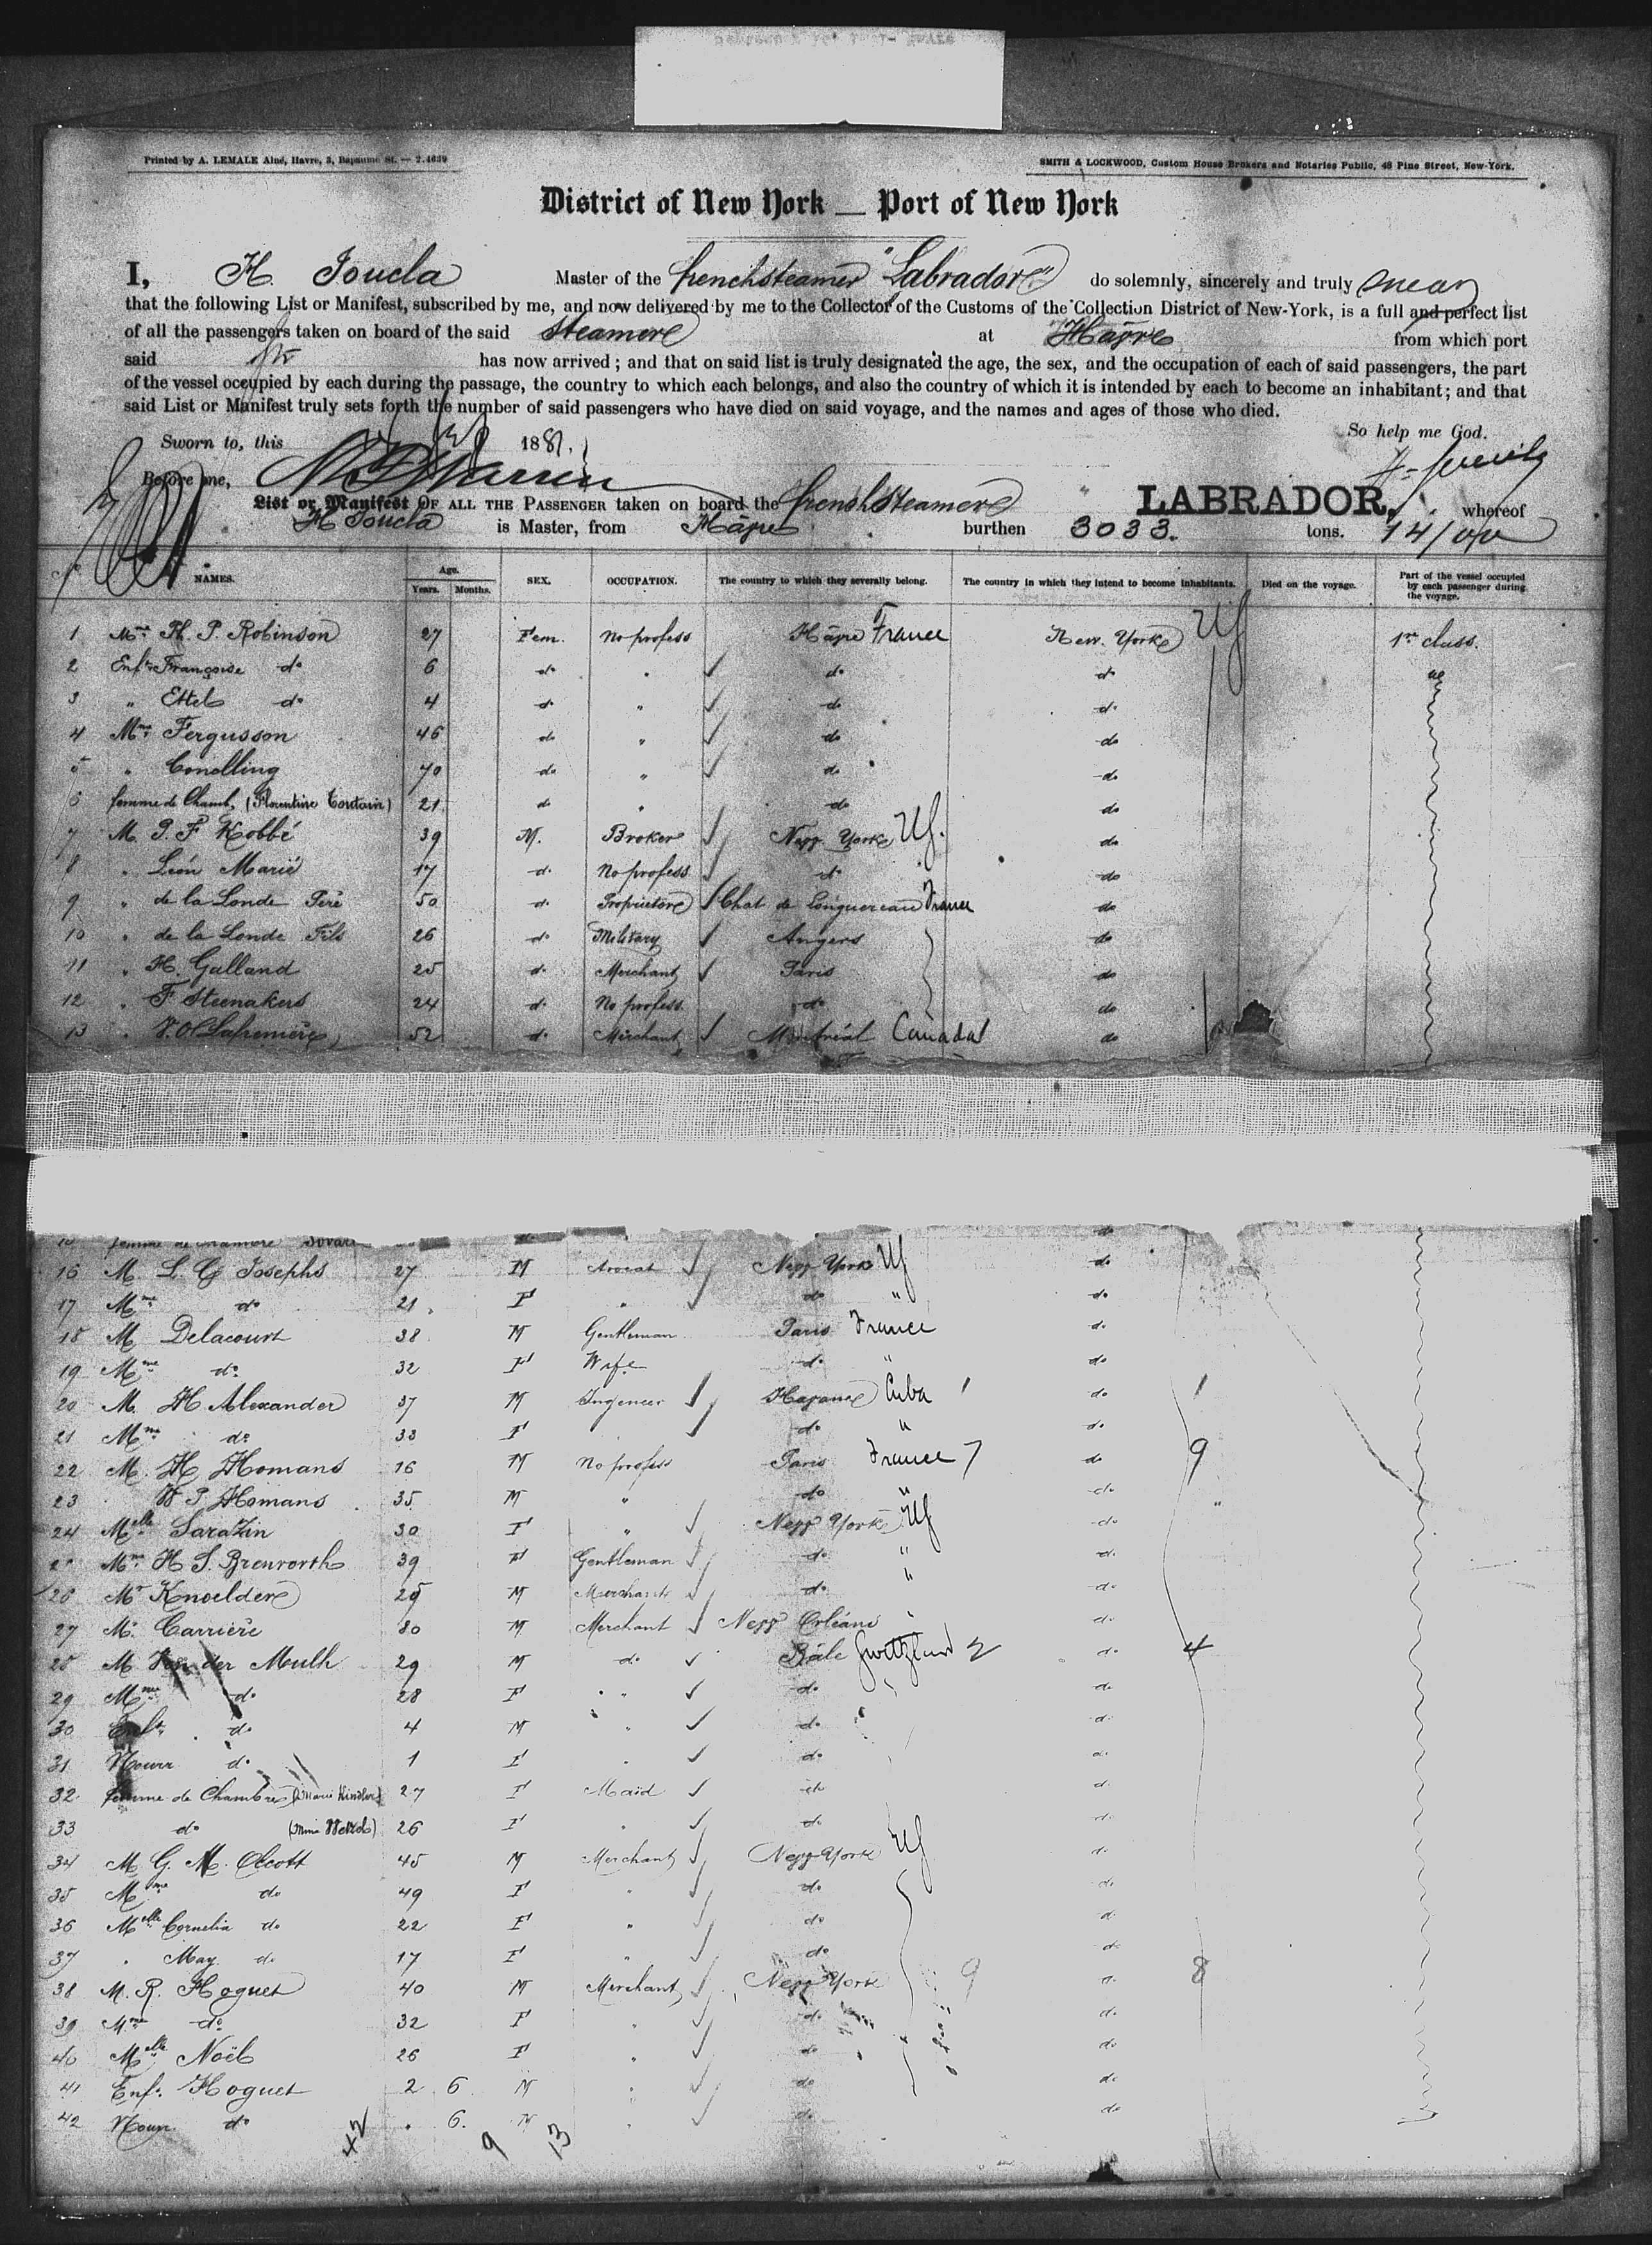 Printed by A. LEMALE Aîné, Havre, 3, Bapaume St. — 2.4639
SMITH & LOCKWOOD, Custom House Brokers and Notaries Public, 48 Pine Street, New-York.
District of New York — Port of New York
I, H. Joucla Master of the french steamer "Labrador" do solemnly, sincerely and truly swear
that the following List or Manifest, subscribed by me, and now delivered by me to the Collector of the Customs of the Collection District of New-York, is a full and perfect list
of all the passengers taken on board of the said steamer at Hâvre from which port
said has now arrived; and that on said list is truly designated the age, the sex, and the occupation of each of said passengers, the part
of the vessel occupied by each during the passage, the country to which each belongs, and also the country of which it is intended by each to become an inhabitant; and that
said List or Manifest truly sets forth the number of said passengers who have died on said voyage, and the names and ages of those who died.
So help me God.
Sworn to, this 1881.
Before me,
List or Manifest OF ALL THE PASSENGER taken on board the french steamer LABRADOR, whereof
H Joucla is Master, from Hâvre burthen 3033. tons.
NAMES. Age. Years. Months. SEX. OCCUPATION. The country to which they severally belong. The country in which they intend to become inhabitants. Died on the voyage. Part of the vessel occupied by each passenger during the voyage.
1 Mme Th. P. Robinson 27 Fem. No profess Hâvre France New. York 1re class.
2 Enft Françoise do 6 do " do do
3 " Ettel do 4 do " do do
4 Mme Fergusson 46 do " do do
5 " Conolling 70 do " do do
6 femme de Chamb. (Florentine Coutain) 21 do " do do
7 M. P. F Kobbé 39 M. Broker New York do
8 " Léon Marié 17 do No profess do do
9 " de la Londe Père 50 do Proprietor Chat de Longuereau France do
10 " de la Londe Fils 26 do Military Angers do
11 " H. Galland 25 do Merchant Paris do
12 " F Steenakers 24 do No profess. do do
13 " Lafrenière 52 do Merchant Montréal Canada do
16 M. L. G Josephs 27 M Avocat New York do
17 Mme do 21 F " do " do
18 M Delacourt 38 M Gentleman Paris France do
19 Mme do 32 F Wife do " do
20 M. H Alexander 37 M Ingeneer Havane Cuba 1 do 1
21 Mme do 33 F do " do
22 M. H Homans 16 M No profess Paris France 7 do 9
23 W P Homans 35 M " do " do
24 Melle Sarazin 30 F " New York do
Mme H S. Brenworth 39 F Gentleman do " do
26 Mr Knoelder 29 M Merchant do " do
27 M. Carrière 30 M Merchant New Orléans do
28 M Von der Mulh 29 M do Bâle Switzland 2 do 4
29 Mme do 28 F " do do
30 Enft. do 4 M " do do
31 Nourr do 1 F " do do
32 femme de Chambre (Marie Kindler) 27 F Maid do do
33 do 26 F " do do
34 M. G. M. Olcott 45 M Merchant New York do
35 Mme do 49 F " do do
36 Melle Cornelia do 22 F " do do
37 " May do 17 F " do do
38 M. R. Hoguet 40 M Merchant New York 9 do 8
39 Mme do 32 F " do do
40 Melle Noël 26 F " do do
41 Enft. Hoguet 2 6 M " do do
42 Nourr. do " 6. M " do do
42 9 13